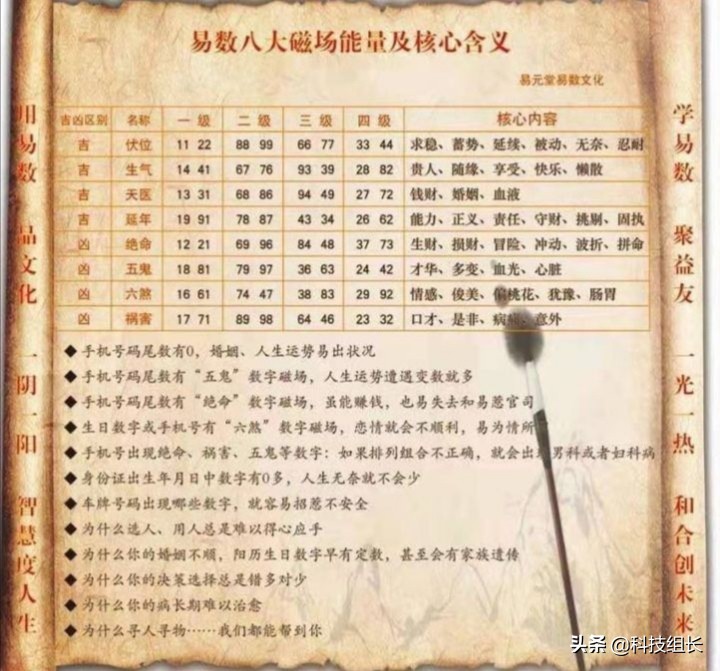 易数八大磁场能量及核心含义
易元堂易数文化
吉凶区别 名称 一 级 二 级 三 级 四 级 核心内容
吉 伏位 11 22 88 99 66 77 33 44 求稳、蓄势、延续、被动、无奈、忍耐
吉 生气 14 41 67 76 93 39 28 82 贵人、随缘、享受、快乐、懒散
吉 天医 13 31 68 86 94 49 27 72 钱财、婚姻、血液
吉 延年 19 91 78 87 43 34 26 62 能力、正义、责任、守财、挑剔、固执
凶 绝命 12 21 69 96 84 48 37 73 生财、损财、冒险、冲动、波折、拼命
凶 五鬼 18 81 79 97 36 63 24 42 才华、多变、血光、心脏
凶 六煞 16 61 74 47 38 83 29 92 情感、俊美、偏桃花、犹豫、肠胃
凶 祸害 17 71 89 98 64 46 23 32 口才、是非、病痛、意外
◆手机号码尾数有0，婚姻、人生运势易出状况
◆手机号码尾数有“五鬼”数字磁场，人生运势遭遇变数就多
◆手机号码尾数有“绝命”数字磁场，虽能赚钱，也易失去和易惹官司
◆生日数字或手机号有“六煞”数字磁场，恋情就会不顺利，易为情所
◆手机号出现绝命、祸害、五鬼等数字：如果排列组合不正确，就会出现男科或者妇科病
◆身份证出生年月日中数字有0多，人生无奈就不会少
◆车牌号码出现哪些数字，就容易招惹不安全
◆为什么选人、用人总是难以得心应手
◆为什么你的婚姻不顺，阳历生日数字早有定数，甚至会有家族遗传
◆为什么你的决策选择总是错多对少
◆为什么你的病长期难以治愈
◆为什么寻人寻物……我们都能帮到你
用易数 品文化 一阴一阳 智慧度人生
学易数 聚益友 一光一热 和合创未来
头条 @科技组长